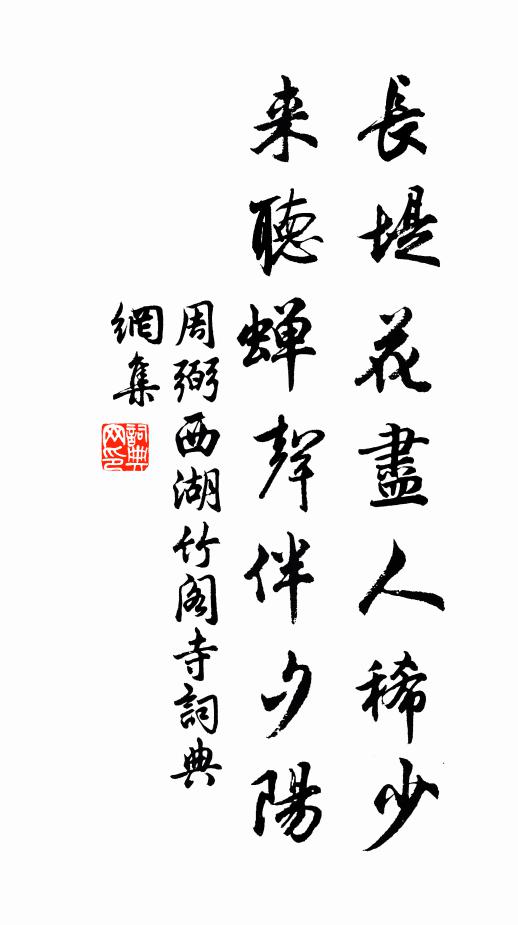 長堤花盡人稀少
来聽蟬聲伴夕陽
周弼西湖竹閣寺詞典
網集
詞典
网印